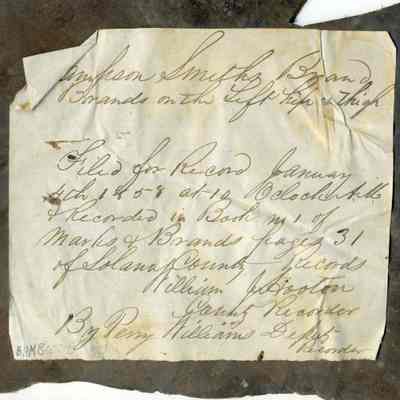 Sampson Smiths Brand
Brands on the Left hip & Thigh
Filed for Record January
4th 1858 at 10 Oclock A.M.
& Recorded in Book No 1 of
Marks & Brands pages 31
of Solano County Records
William J
County Recorder
By Perry Williams Deputy
Recorder